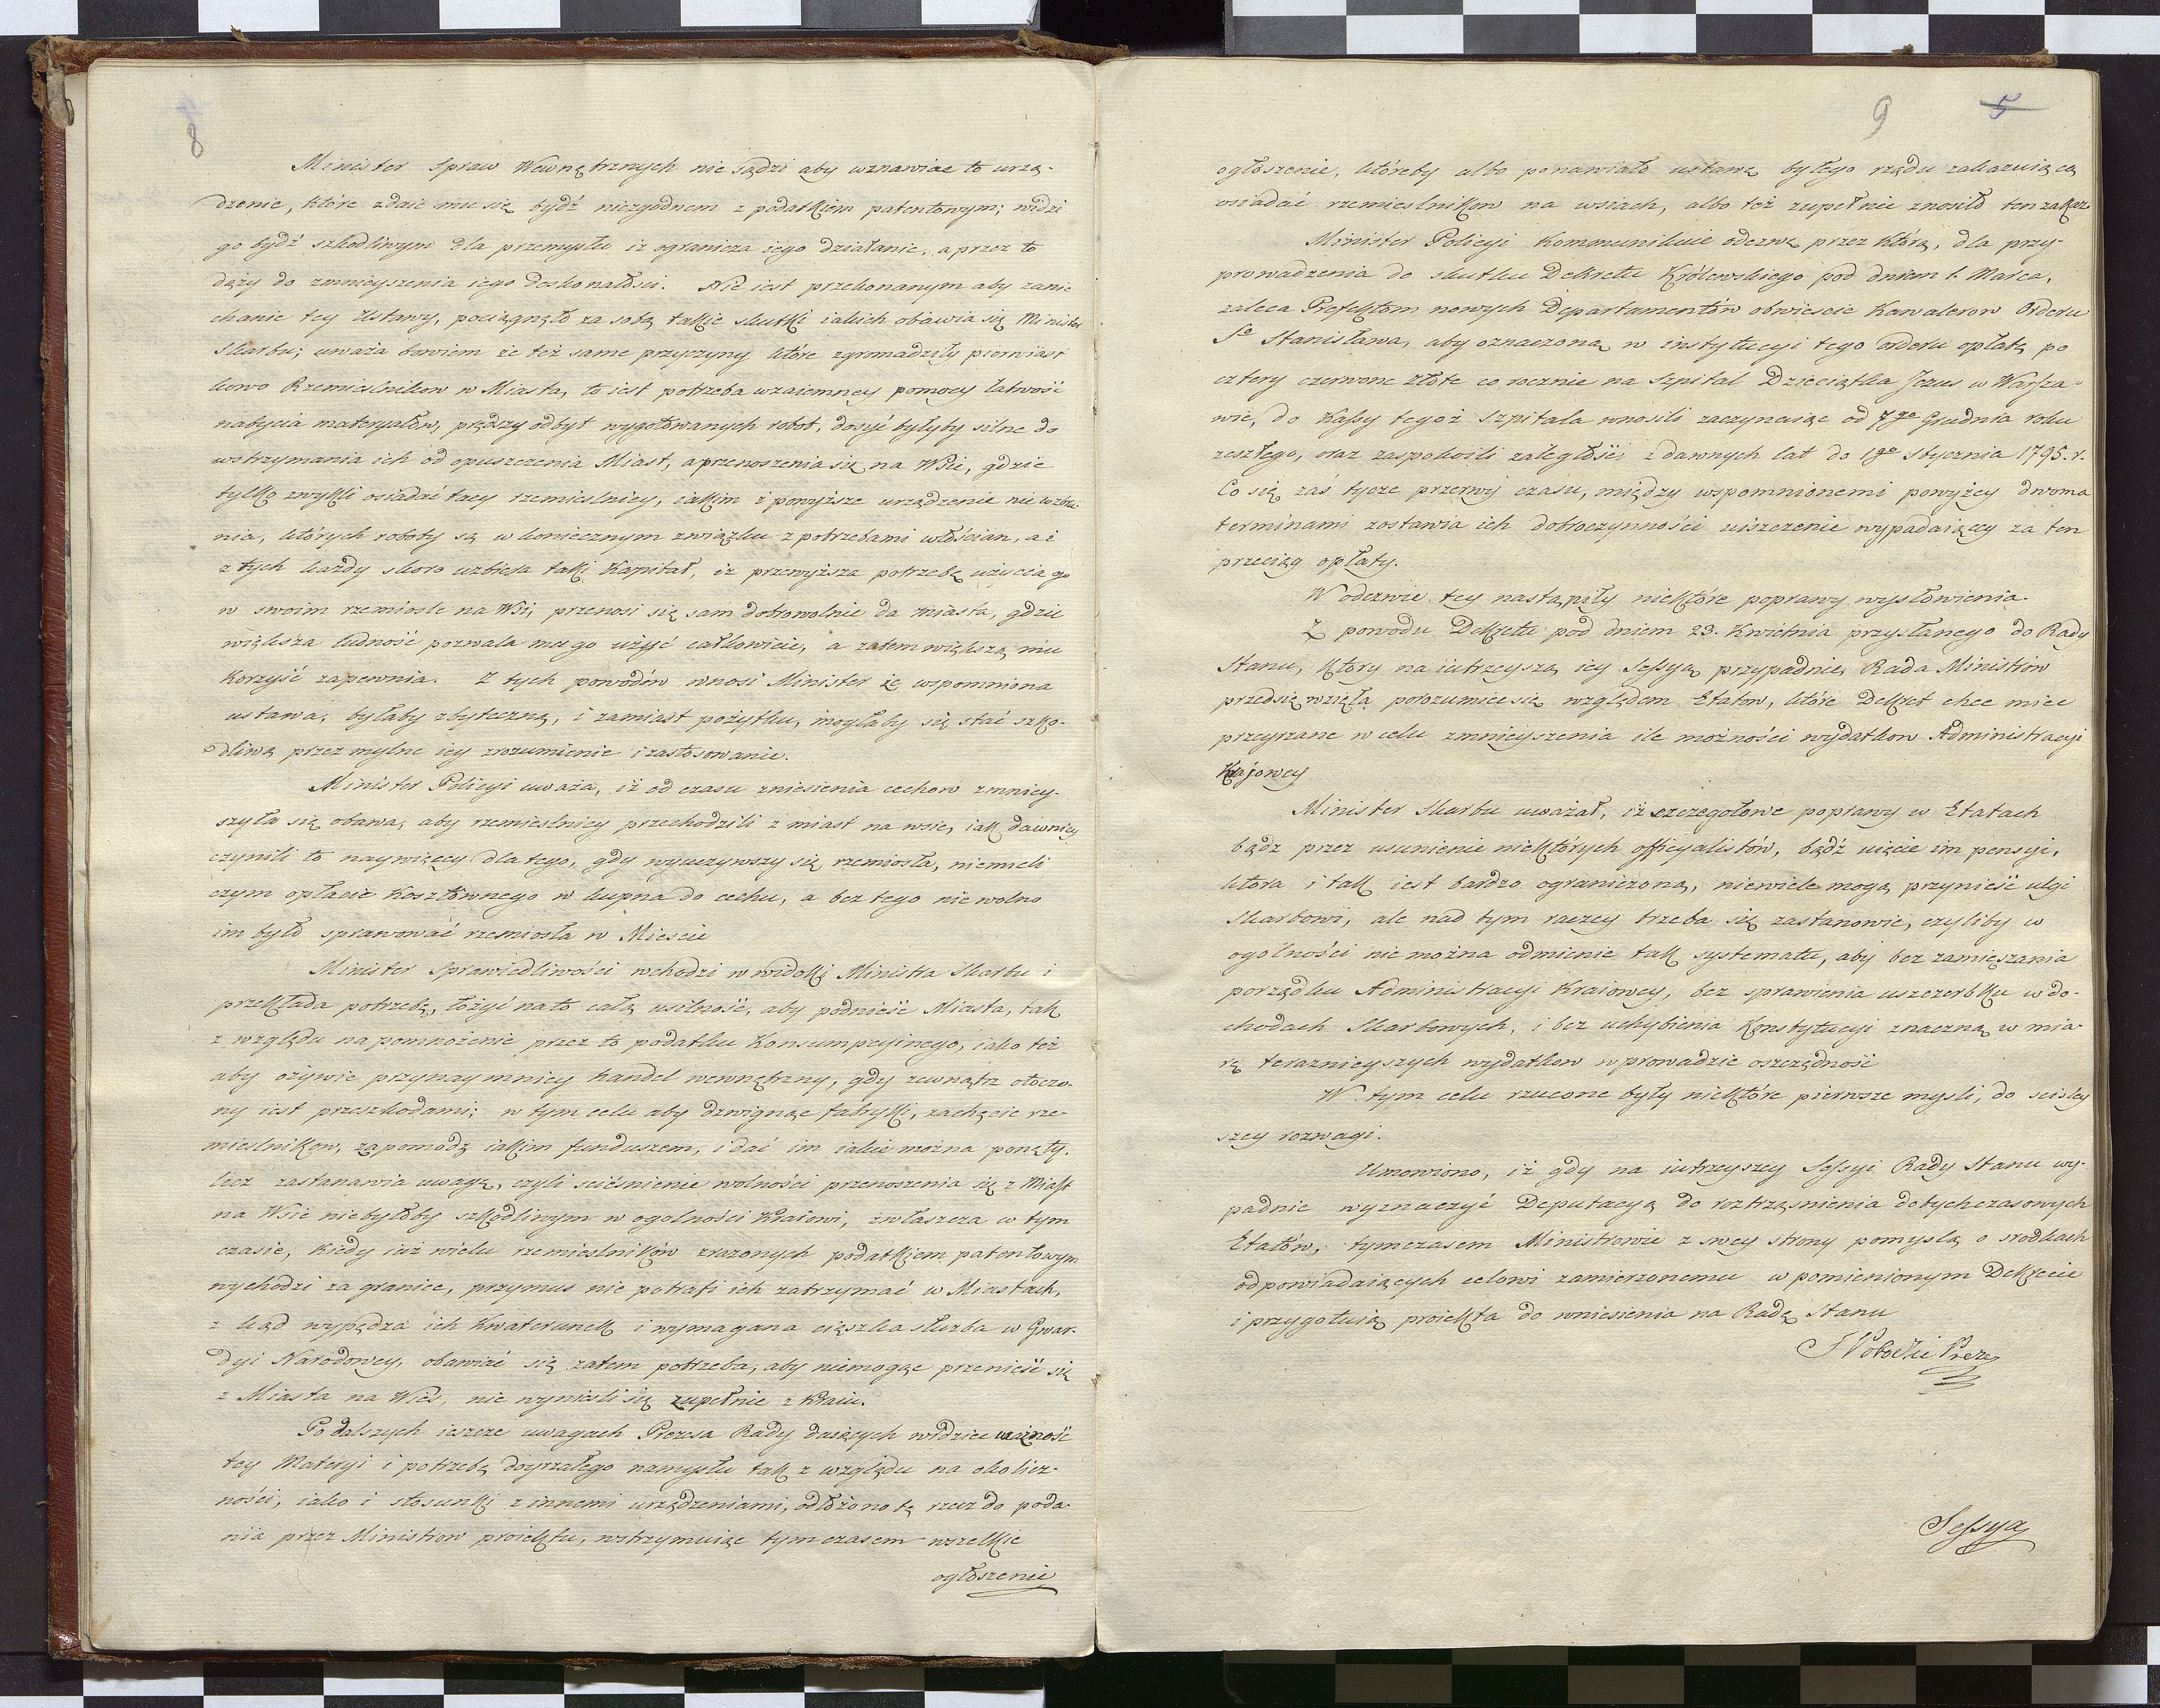 8
Minister Spraw Wewnętrznych nie sądzi aby wznawiac to urzą-
dzenie, które zdaie mu się bydź niezgodnem z podatkiem patentowym; widzi
go bydź szkodliwym dla przemysłu iż ogranicza iego działanie, a przez to
dąży do zmnieyszenia iego doskonałości. Nie iest przekonanym aby zanie-
chanie tey Ustawy, pociągnęło za sobą takie skutki iakich obawia się Minister
Skarbu; uważa bowiem że też same przyczyny które zgromadziły pierwiast-
kowo Rzemieslnikow w Miasta, to iest potrzeba wzaiemney pomocy łatwość
nabycia materyałów, prędszy odbyt wygotowanych robot, dosyć byłyby silne do
wstrzymania ich od opuszczenia Miast, a przenoszenia się na Wsie, gdzie
tylko zwykli osiadać tacy rzemieslnicy, iakim i powyższe urządzenie nie wzbra-
nia, których roboty są w koniecznym związku z potrzebami włościan, a i
z tych kazdy skoro uzbiera taki Kapitał, iż przewyższa potrzebę użycia go
w swoim rzemiosle na Wsi, przenosi się sam dobrowolnie do miasta, gdzie
większa ludność pozwala mu go użyć całkowicie, a zatem większą mu
Korzyść zapewnia. Z tych powodów wnosi Minister że wspomniona
ustawa, byłaby zbyteczną, i zamiast pożytku, mogłaby się stać szko-
dliwą przez mylne iey zrozumienie i zastosowanie.
Minister Policyi uważa, iż od czasu zniesienia cechow zmniey-
szyła się obawa, aby rzemieslnicy przechodzili z miast na wsie, iak dawniey
czynili to naywięcey dla tego, gdy wyuczywszy się rzemiosła, niemieli
czym opłacic kosztownego wkupna do cechu, a bez tego nie wolno
im było sprawować rzemiosła w Miescie
Minister Sprawiedliwości wchodzi w widoki Ministra Skarbu i
przekłada potrzebę, łożyć na to całą usilność, aby podnieść Miasta, tak
z względu na pomnożenie przez to podatku Konsumpcyinego, iako też
aby ożywic przynaymniey handel wewnętrzny, gdy zewnątrz otoczo-
ny iest przeszkodami; w tym celu aby dzwignąc fabryki, zachęcic rze-
mieslnikow, zapomodz iakim funduszem, i dać im iakie można ponęty.
lecz zastanawia uwagę, czyli sciesnienie wolności przenoszenia się z Miast
na Wsie niebyłoby szkodliwym w ogolności Kraiowi, zwłaszcza w tym
czasie, kiedy iuż wielu rzemieslników zrazonych podatkiem patentowym
wychodzi za granice, przymus nie potrafi ich zatrzymać w Miastach,
z kąd wypędza ich Kwaterunek i wymagana cięszka służba w Gwar-
dyi Narodowey, obawiać się zatem potrzeba, aby niemogąc przenieść się
z Miasta na Wieś, nie wynieśli się zupełnie z Kraiu.
Po dalszych ieszcze uwagach Prezesa Rady daiących widziec ważność
tey Materyi i potrzebę doyrzałego namysłu tak z względu na okolicz-
ności, iako i stosunki z innemi urządzeniami, odłożono tę rzecz do poda-
nia przez Ministrow proiektu, wstrzymuiąc tymczasem wszelkie
ogłoszenie
9 5
ogłoszenie, któreby albo ponawiało ustawę byłego rządu zakazuiącą
osiadać rzemieslnikow na wsiach, albo też zupełnie znosiło ten zakaz
Minister Policyi Kommunikuie odezwę przez którą, dla przy-
prowadzenia do skutku Dekretu Królewskiego pod dniem 1. Marca,
zaleca Prefektom nowych Departamentów obwieścić Kawalerow Orderu
So Stanisława, aby oznaczoną w instytucyi tego orderu opłatę po
cztery czerwone złote co rocznie na Szpital Dzieciątka Jezus w Warsza-
wie, do Kassy tegoż Szpitala wnosili zaczynaiąc od 7go Grudnia roku
zeszłego, oraz zaspokoili zaległości z dawnych lat do 1go Stycznia 1795. r.
Co się zaś tycze przerwy czasu, między wspomnionemi powyżey dwoma
terminami zostawia ich dobroczynności uiszczenie wypadaiącey za ten
przeciąg opłaty.
W odezwie tey nastąpiły niektóre poprawy wysłowienia.
Z powodu Dekretu pod dniem 23. Kwietnia przysłanego do Rady
Stanu, który na iutrzeyszą iey Sessyą przypadnie, Rada Ministrów
przedsięwzięła porozumiec się względem Etatow, które Dekret chce miec
przeyrzane w celu zmnieyszenia ile możności wydatkow Administracyi
Krajowey
Minister Skarbu uważał, iż szczegołowe poprawy w Etatach
bądz przez usunienie niektórych officyalistów, bądź uięcie im pensyi,
która i tak iest bardzo ograniczoną, niewiele mogą przynieść ulgi
Skarbowi, ale nad tym raczey trzeba się zastanowic, czyliby w
ogolności nie można odmienic tak systematu, aby bez zamięszania
porządku Administracyi Kraiowey, bez sprawienia uszczerbku w do-
chodach Skarbowych, i bez uchybienia Konstytucyi znaczną w mia-
rę teraznieyszych wydatkow wprowadzic oszczędność
W tym celu rzucone były niektóre pierwsze mysli, do scisley-
szey rozwagi.
Umowiono, iż gdy na iutrzeyszey Sessyi Rady Stanu wy-
padnie wyznaczyć Deputacyą do roztrząśnienia dotychczasowych
Etatów, tymczasem Ministrowie z swey strony pomyslą o srodkach
odpowiadaiących celowi zamierzonemu w pomienionym Dekrecie
i przygotuią proiekta do wniesienia na Radę Stanu
S Potocki Prezes
Sessya